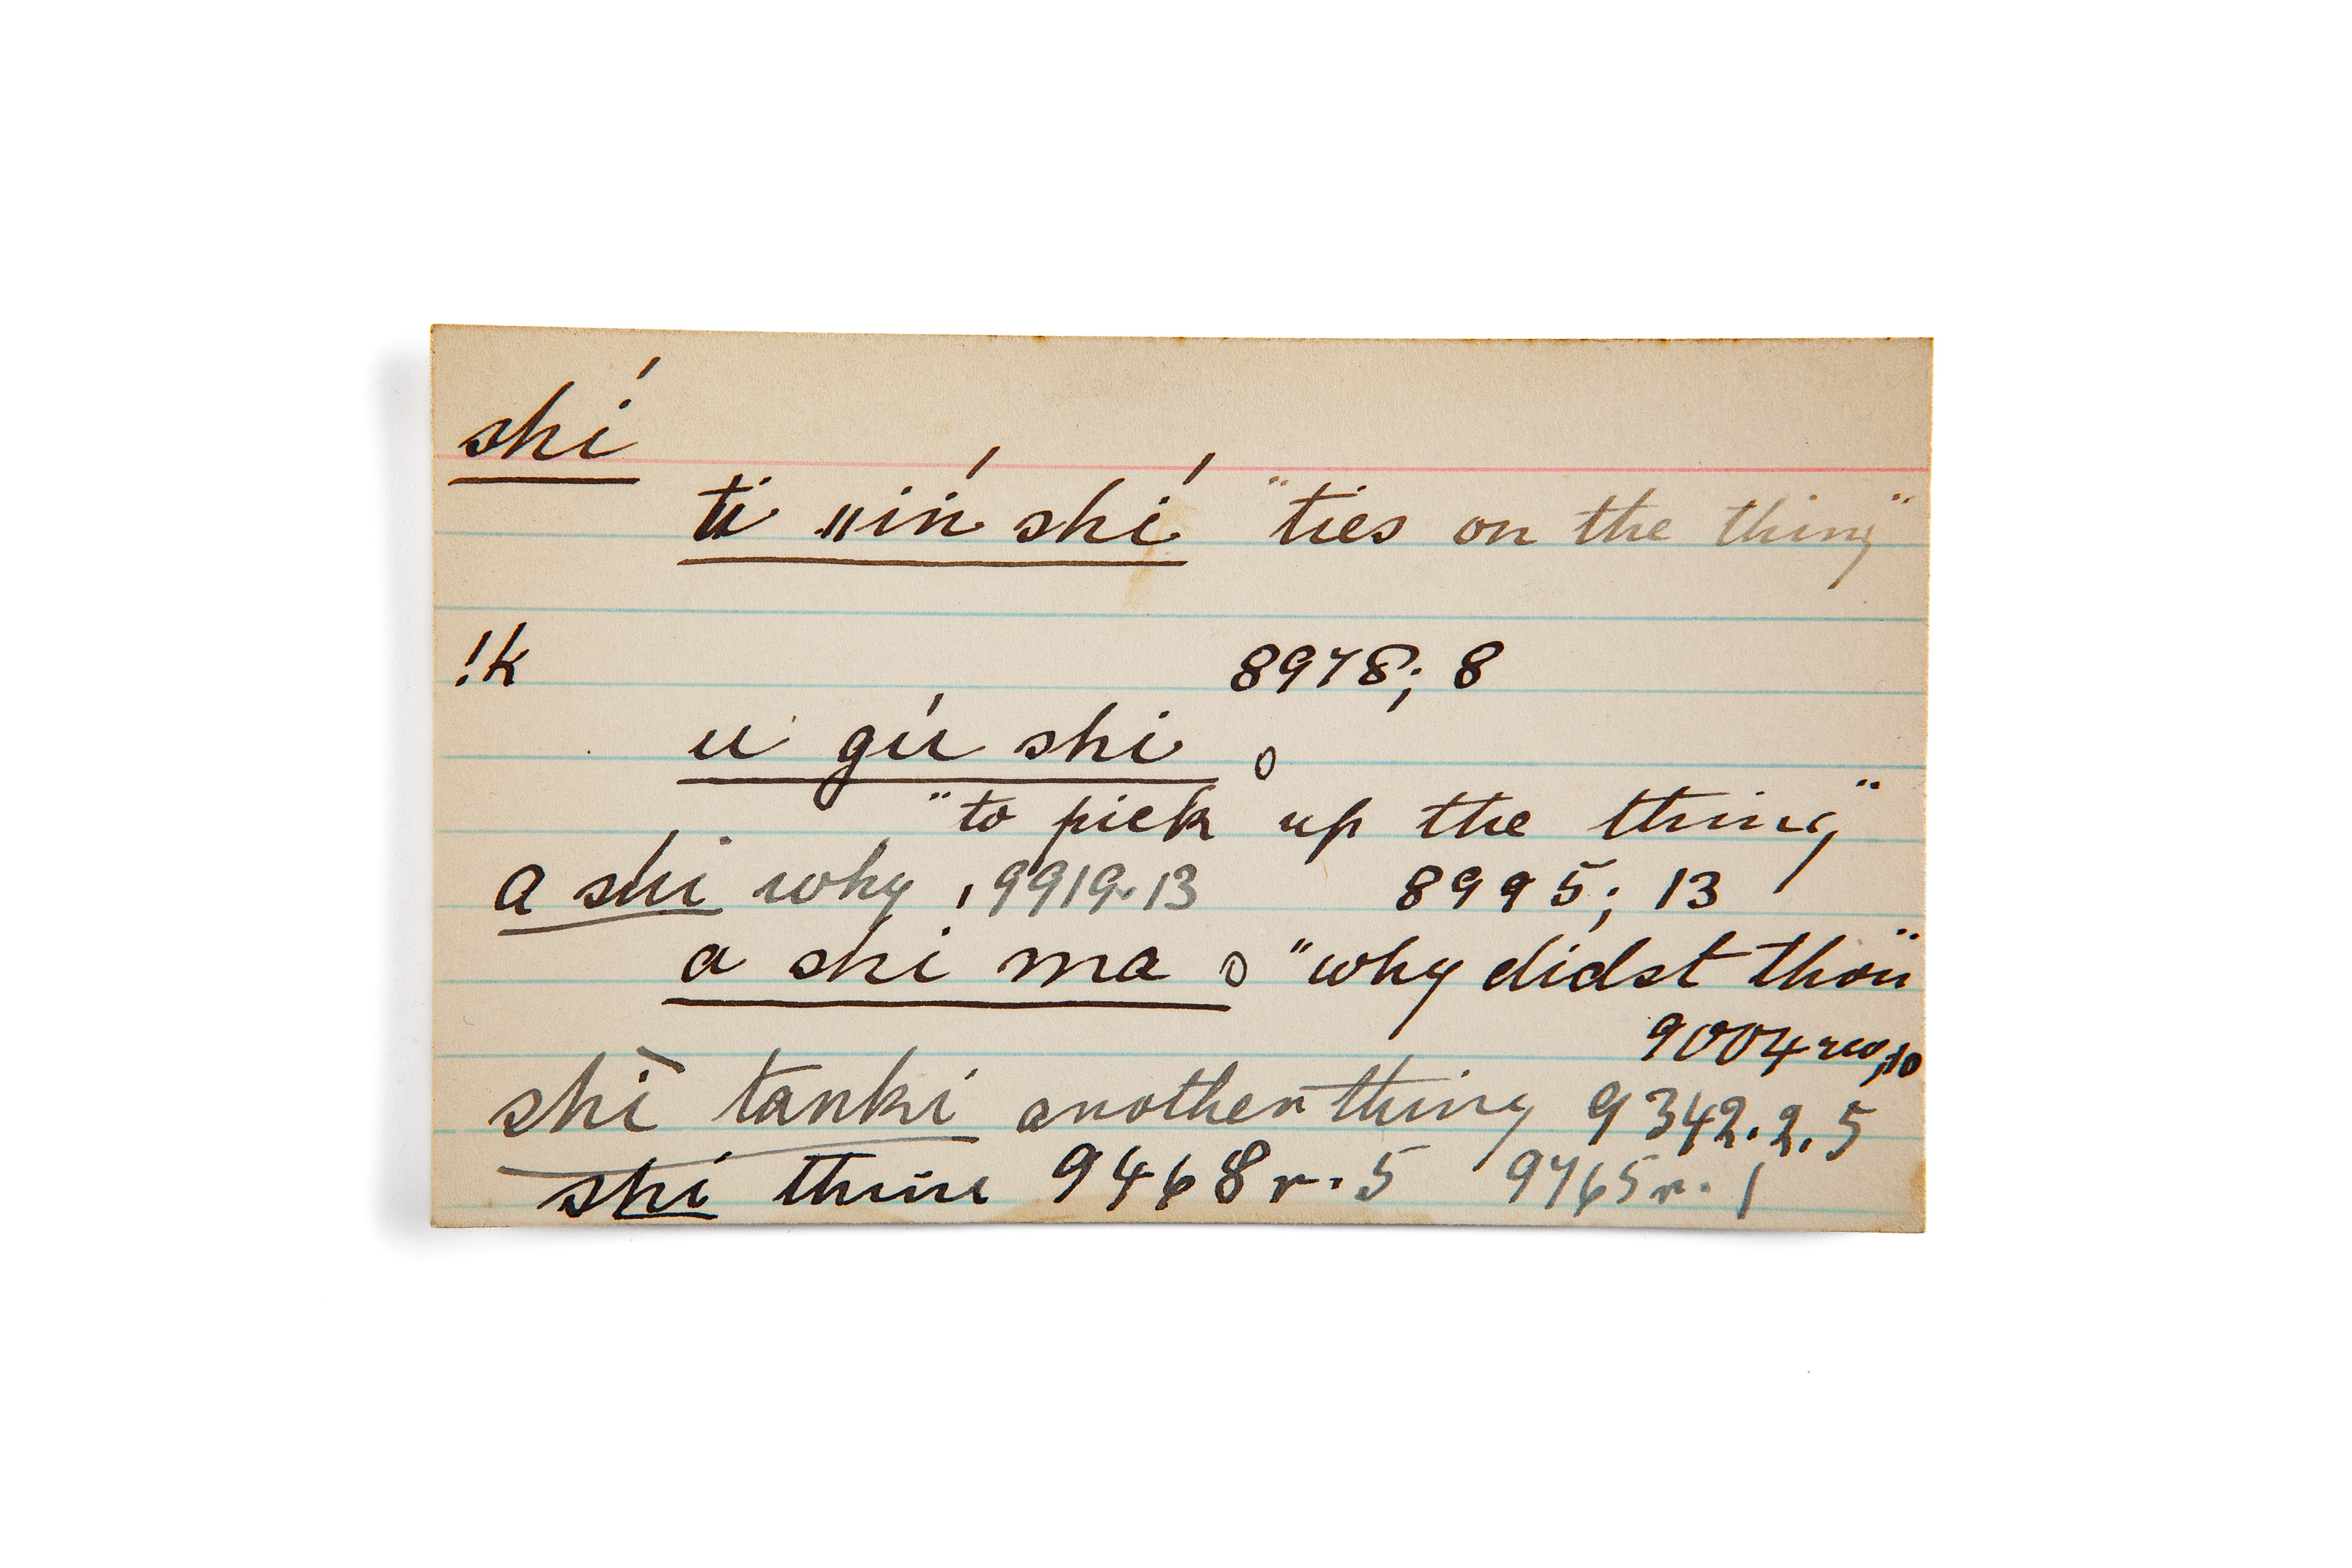 shí
ti ‖iń shí "ties on the thing"
!k 8978; 8
u gú shi
"to pick up the thing"
a shí why, 9919.13 8995; 13
a shi ma "why didst thou"
9004 rev, 10
shī tanki another thing 9342.2.5
shi thine 9468 r. 5 9765 r. 1